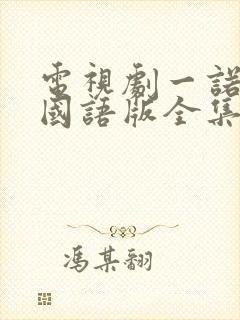 電視劇一諾
國語版全集
馮某翻